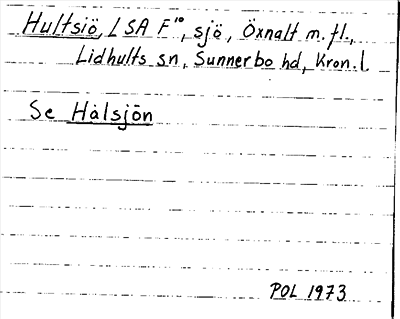 Hultsiö, LSA F¹⁰, sjö, Öxnalt m. fl.,
Lidhults sn, Sunnerbo hd, Kron. l
Se Hålsjön
POL 1973